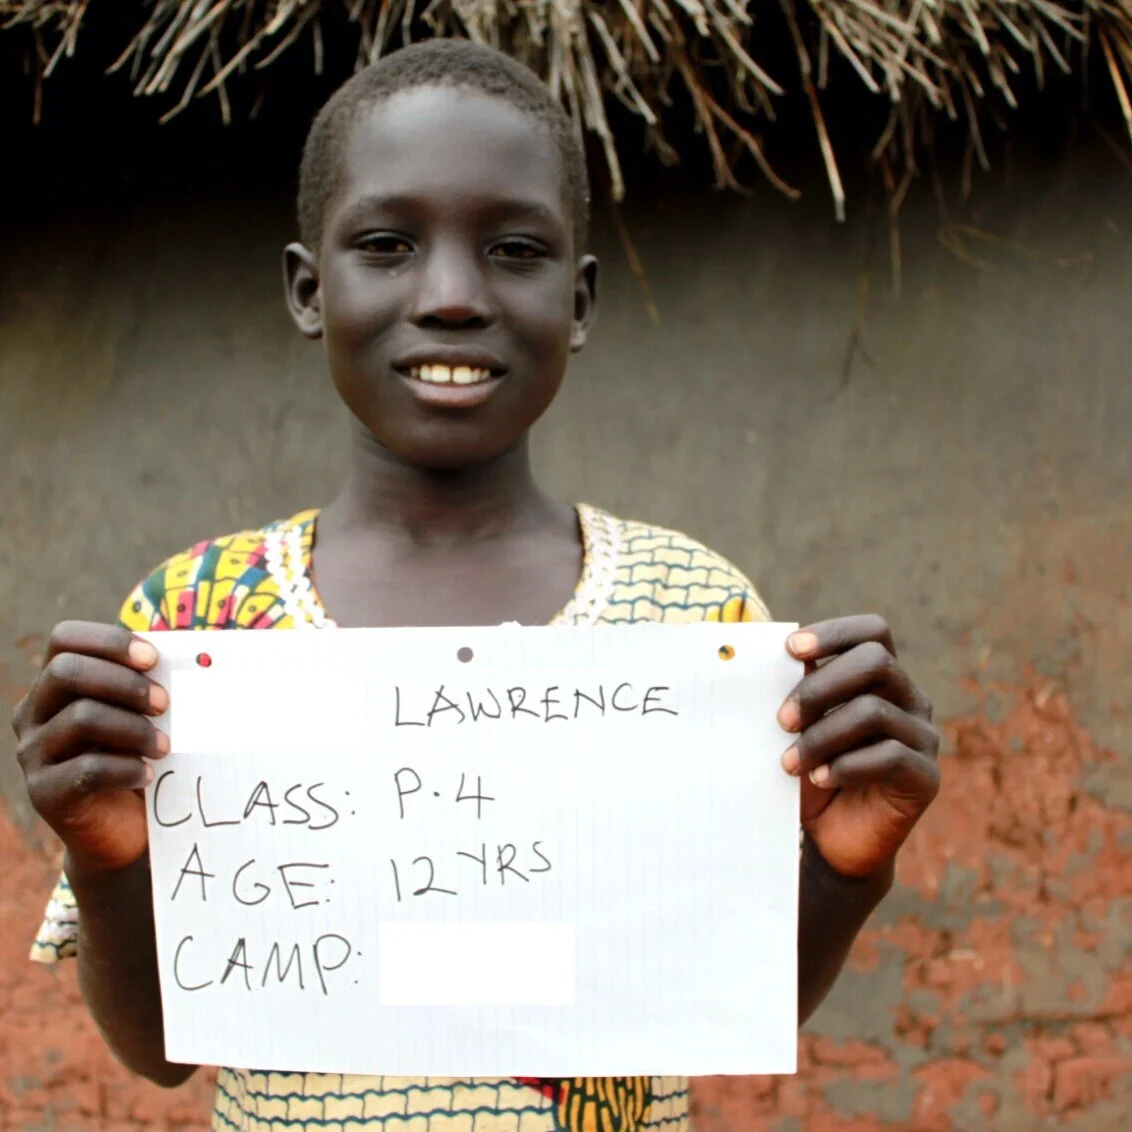 LAWRENCE
CLASS: P.4
AGE: 12 YRS
CAMP: